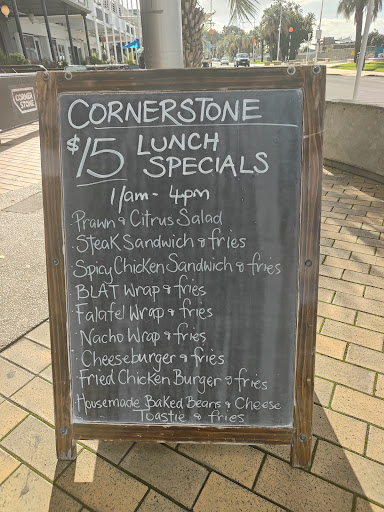 CORNER
STONE
CORNERSTONE
$15 LUNCH
SPECIALS
11am - 4pm
· Prawn & Citrus Salad
· Steak Sandwich & fries
· Spicy Chicken Sandwich & fries
· BLAT Wrap & fries
· Falafel Wrap & fries
· Nacho Wrap & fries
· Cheeseburger & fries
· Fried Chicken Burger & fries
· Housemade Baked Beans & Cheese
Toastie & fries